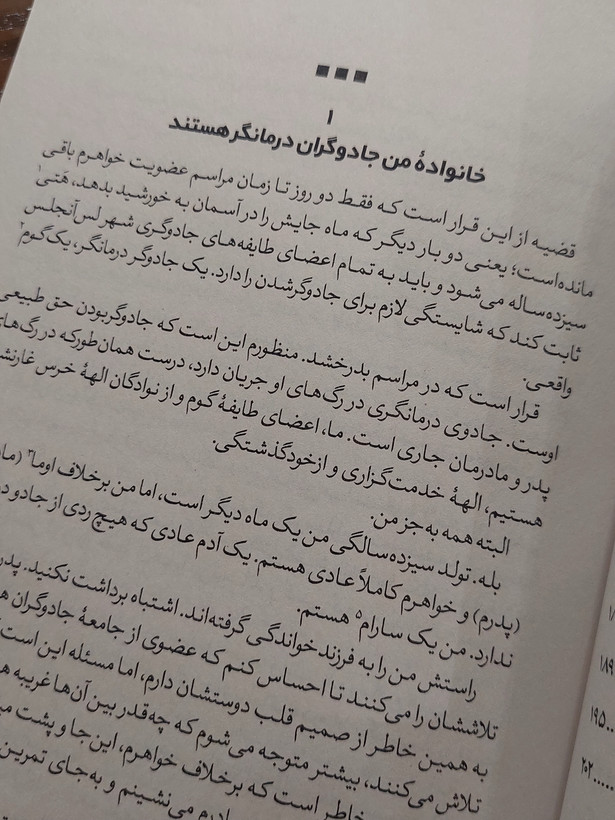 ۱
خانوادهٔ من جادوگران درمانگر هستند
قضیه از این قرار است که فقط دو روز تا زمان مراسم عضویت خواهرم باقی
مانده‌است؛ یعنی دو بار دیگر که ماه جایش را در آسمان به خورشید بدهد، هَتی۱
سیزده‌ساله می‌شود و باید به تمام اعضای طایفه‌های جادوگری شهر لس‌آنجلس
ثابت کند که شایستگی لازم برای جادوگرشدن را دارد. یک جادوگر درمانگر، یک گوم۲
واقعی.
قرار است که در مراسم بدرخشد. منظورم این است که جادوگربودن حق طبیعی
اوست. جادوی درمانگری در رگ‌های او جریان دارد، درست همان‌طورکه در رگ‌های
پدر و مادرمان جاری است. ما، اعضای طایفهٔ گوم و از نوادگان الههٔ خرس غارنش
هستیم، الههٔ خدمت‌گزاری و ازخودگذشتگی.
البته همه به‌جز من.
بله. تولد سیزده‌سالگی من یک ماه دیگر است، اما من برخلاف اوما۳ (ما
(پدرم) و خواهرم کاملاً عادی هستم. یک آدم عادی که هیچ ردی از جادو در
ندارد. من یک سارام۵ هستم.
راستش من را به فرزندخواندگی گرفته‌اند. اشتباه برداشت نکنید. پدر
تلاششان را می‌کنند تا احساس کنم که عضوی از جامعهٔ جادوگران ه
به همین خاطر از صمیم قلب دوستشان دارم، اما مسئله این است
تلاش می‌کنند، بیشتر متوجه می‌شوم که چه‌قدر بین آن‌ها غریبه ه
خاطر است که برخلاف خواهرم، این‌جا و پشت می
مادرم می‌نشینم و به‌جای تمرین
۱۸۹
۱۹۵
۲۰۲